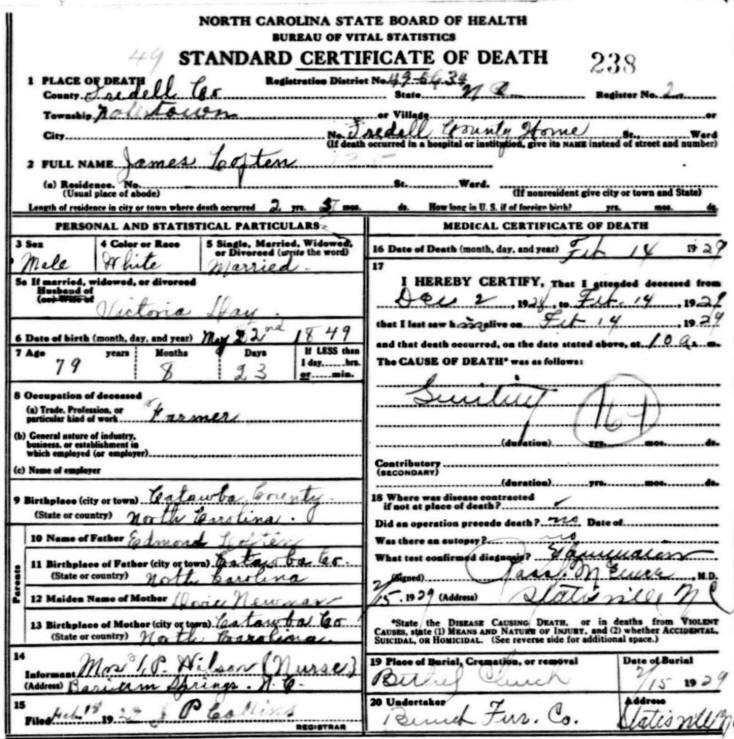 NORTH CAROLINA STATE BOARD OF HEALTH
BUREAU OF VITAL STATISTICS
49 STANDARD CERTIFICATE OF DEATH 238
1 PLACE OF DEATH Registration District No. 49
County Iredell Co State N C Register No. 2
Township or Village or
City No. Iredell County Home St., Ward
(If death occurred in a hospital or institution, give its NAME instead of street and number)
2 FULL NAME James Loften
(a) Residence. No. St. Ward.
(Usual place of abode) (If nonresident give city or town and State)
Length of residence in city or town where death occurred 2 yrs. 5 mos. ds. How long in U. S. if of foreign birth? yrs. mos. ds.
PERSONAL AND STATISTICAL PARTICULARS
3 Sex 4 Color or Race 5 Single, Married, Widowed, or Divorced (write the word)
Male White Married
5a If married, widowed, or divorced
Husband of
(or) Wife of
Victoria Hay
6 Date of birth (month, day, and year) May 22nd 1849
7 Age years Months Days If LESS than
1 day, hrs.
or min.
79 8 23
8 Occupation of deceased
(a) Trade, Profession, or
particular kind of work Farmer
(b) General nature of industry,
business, or establishment in
which employed (or employer)
(c) Name of employer
9 Birthplace (city or town) Catawba County
(State or country) North Carolina.
Parents
10 Name of Father Edmond Loften
11 Birthplace of Father (city or town) Catawba Co.
(State or country) North Carolina
12 Maiden Name of Mother Newman
13 Birthplace of Mother (city or town) Catawba Co
(State or country) North Carolina
14
Informant Mrs. I. P. Wilson (Nurse)
(Address) Barium Springs. N. C.
15
Filed Feb 18 19 J P
REGISTRAR
MEDICAL CERTIFICATE OF DEATH
16 Date of Death (month, day, and year) Feb 14 1929
17
I HEREBY CERTIFY, That I attended deceased from
Dec 2 1928, to Feb. 14 1929
that I last saw him alive on Feb 14 1929
and that death occurred, on the date stated above, at 10 a m.
The CAUSE OF DEATH* was as follows:
Senility 164
(duration) yrs. mos. ds.
Contributory
(SECONDARY)
(duration) yrs. mos. ds.
18 Where was disease contracted
if not at place of death?
Did an operation precede death? no Date of
Was there an autopsy? no
What test confirmed diagnosis?
(Signed) M.D.
2/15, 1929 (Address) Statesville N C
*State the DISEASE CAUSING DEATH, or in deaths from VIOLENT
CAUSES, state (1) MEANS AND NATURE OF INJURY, and (2) whether ACCIDENTAL,
SUICIDAL, or HOMICIDAL. (See reverse side for additional space.)
19 Place of Burial, Cremation, or removal Date of Burial
Bethel Church 2/15 1929
20 Undertaker Address
Bunch Fur. Co. Statesville N